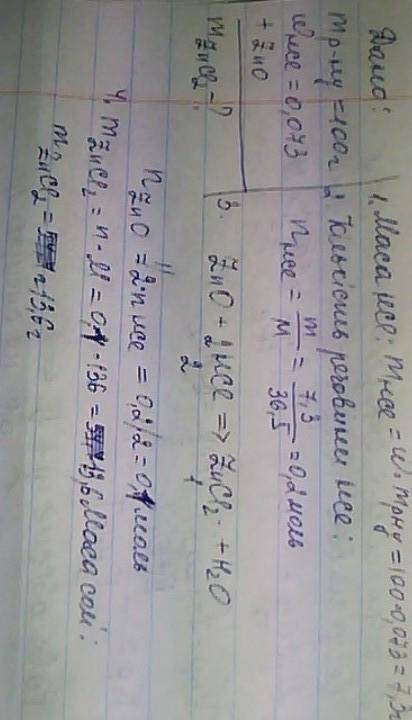 Дано:
m р-ну = 100г
w HCl = 0,073
+ ZnO
m ZnCl₂ - ?
1. Маса HCl: m HCl = w · m р-ну = 100·0,073 = 7,3г
2. Кількість речовини HCl:
n HCl = m/M = 7,3/36,5 = 0,2 моль
3. ZnO + 2HCl => ZnCl₂ + H₂O
2 1
n ZnO = 2n HCl = 0,2/2 = 0,1 моль
4. m ZnCl₂ = n · M = 0,1 · 136 = 13,6 Маса солі:
m ZnCl₂ = 13,6г